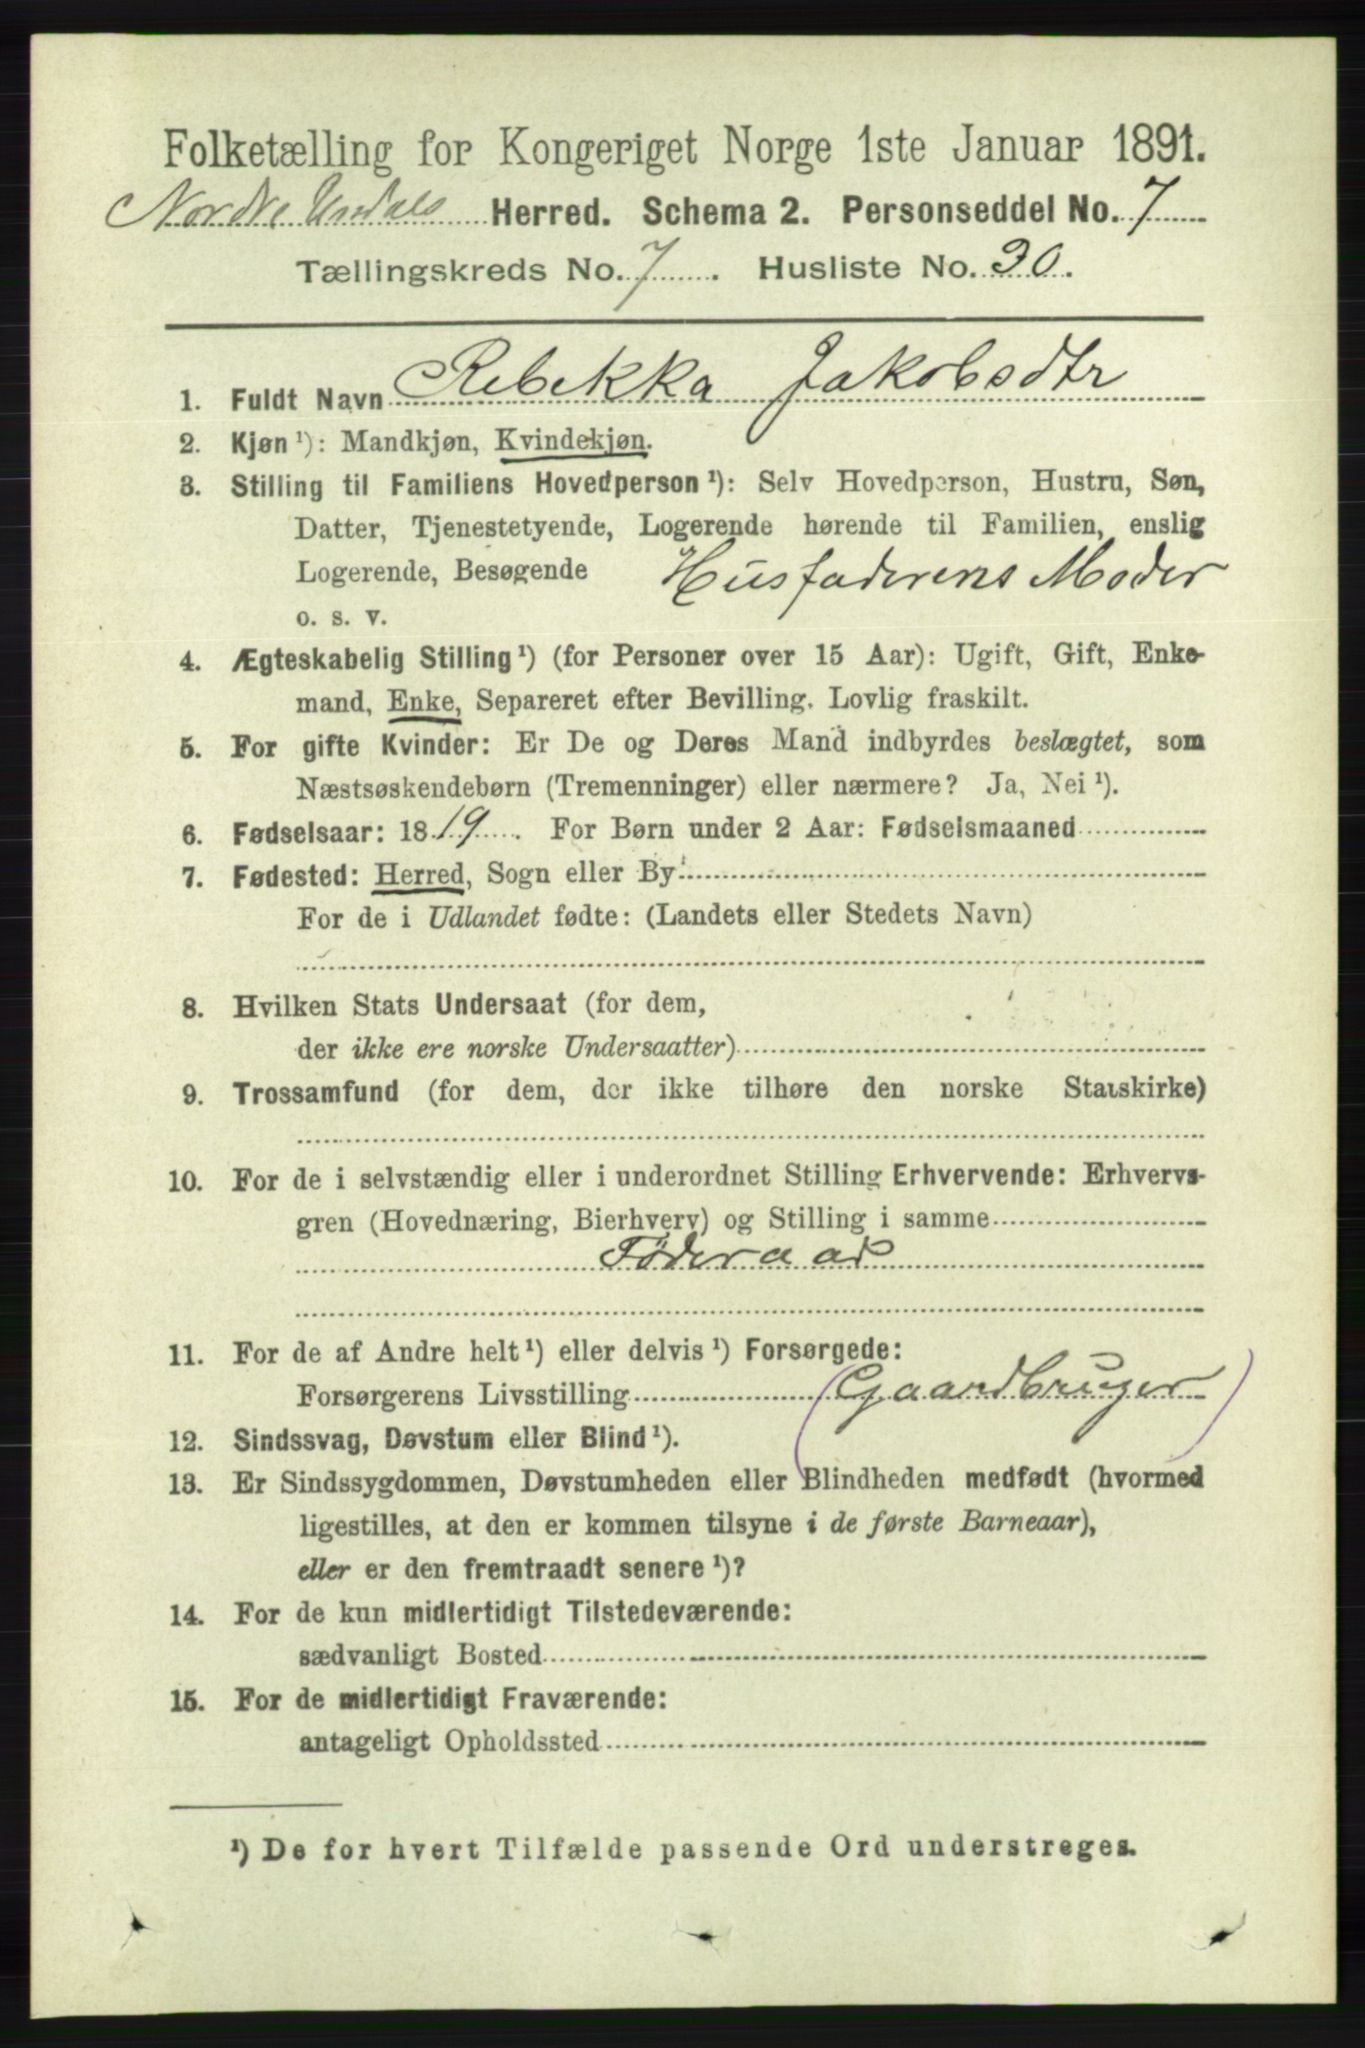 Folketælling for Kongeriget Norge 1ste Januar 1891.
Nordre Undals Herred. Schema 2. Personseddel No. 7
Tællingskreds No. 7. Husliste No. 30.
1. Fuldt Navn Rebekka Jakobsdtr
2. Kjøn ¹): Mandkjøn, Kvindekjøn.
3. Stilling til Familiens Hovedperson ¹): Selv Hovedperson, Hustru, Søn,
Datter, Tjenestetyende, Logerende hørende til Familien, enslig
Logerende, Besøgende Husfaderens Moder
o. s. v.
4. Ægteskabelig Stilling ¹) (for Personer over 15 Aar): Ugift, Gift, Enke-
mand, Enke, Separeret efter Bevilling. Lovlig fraskilt.
5. For gifte Kvinder: Er De og Deres Mand indbyrdes beslægtet, som
Næstsøskendebørn (Tremenninger) eller nærmere? Ja, Nei ¹).
6. Fødselsaar: 1819. For Børn under 2 Aar: Fødselsmaaned
7. Fødested: Herred, Sogn eller By
For de i Udlandet fødte: (Landets eller Stedets Navn)
8. Hvilken Stats Undersaat (for dem,
der ikke ere norske Undersaatter)
9. Trossamfund (for dem, der ikke tilhøre den norske Statskirke)
10. For de i selvstændig eller i underordnet Stilling Erhvervende: Erhvervs-
gren (Hovednæring, Bierhverv) og Stilling i samme
Föderaad
11. For de af Andre helt ¹) eller delvis ¹) Forsørgede:
Forsørgerens Livsstilling (Gaardbruger)
12. Sindssvag, Døvstum eller Blind ¹).
13. Er Sindssygdommen, Døvstumheden eller Blindheden medfødt (hvormed
ligestilles, at den er kommen tilsyne i de første Barneaar),
eller er den fremtraadt senere ¹)?
14. For de kun midlertidigt Tilstedeværende:
sædvanligt Bosted
15. For de midlertidigt Fraværende:
antageligt Opholdssted
¹) De for hvert Tilfælde passende Ord understreges.